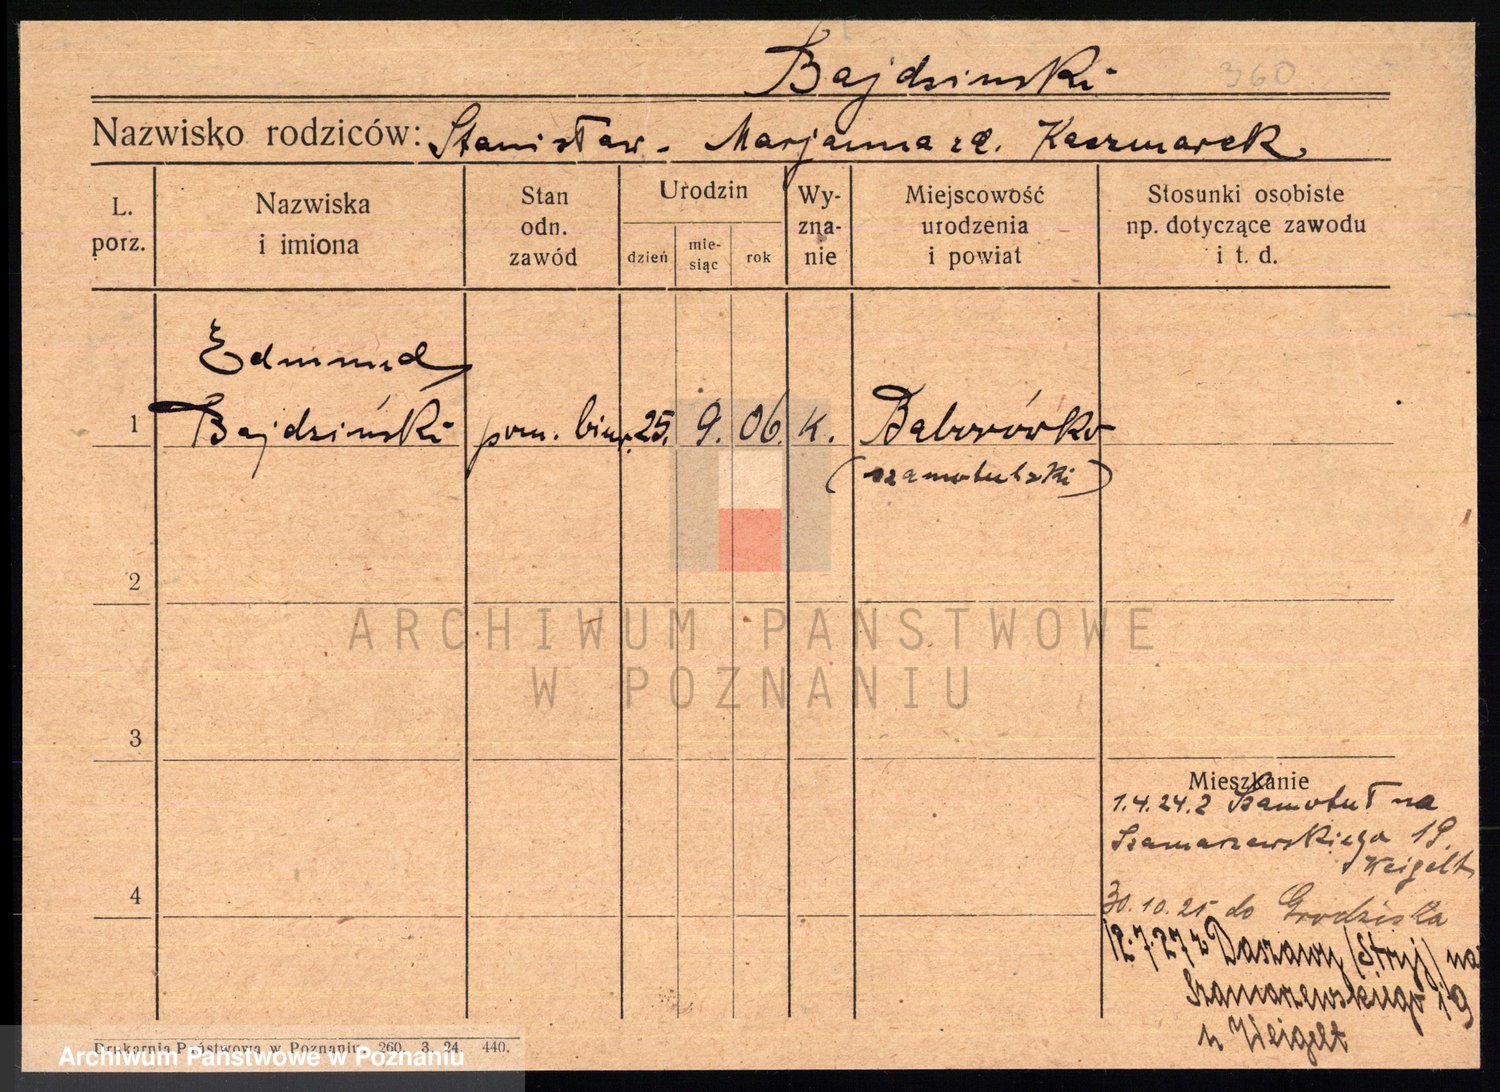 Bajdzinski
360
Nazwisko rodziców: Stanisław - Marjanna zd. Kaczmarek.
L. porz.
Nazwiska i imiona
Stan odn. zawód
Urodzin
dzień
mie-siąc
rok
Wy-zna-nie
Miejscowość urodzenia i powiat
Stosunki osobiste np. dotyczące zawodu i t. d.
Edmund
1 Bajdziński pom. biur. 25. 9. 06. k. Baborówko
(szamotulski)
2
ARCHIWUM PAŃSTWOWE
W POZNANIU
3
Mieszkanie
1.4.24. z Szamotuł na
Szamarzewskiego 19.
Weigelt
4
30.10.25 do Grodziska
12.7.27 z Daszawy (Stryj) na
Szamarzewskiego 19
u Weigelt
Drukarnia Państwowa w Poznaniu. 260. 3. 24. 440.
Archiwum Państwowe w Poznaniu